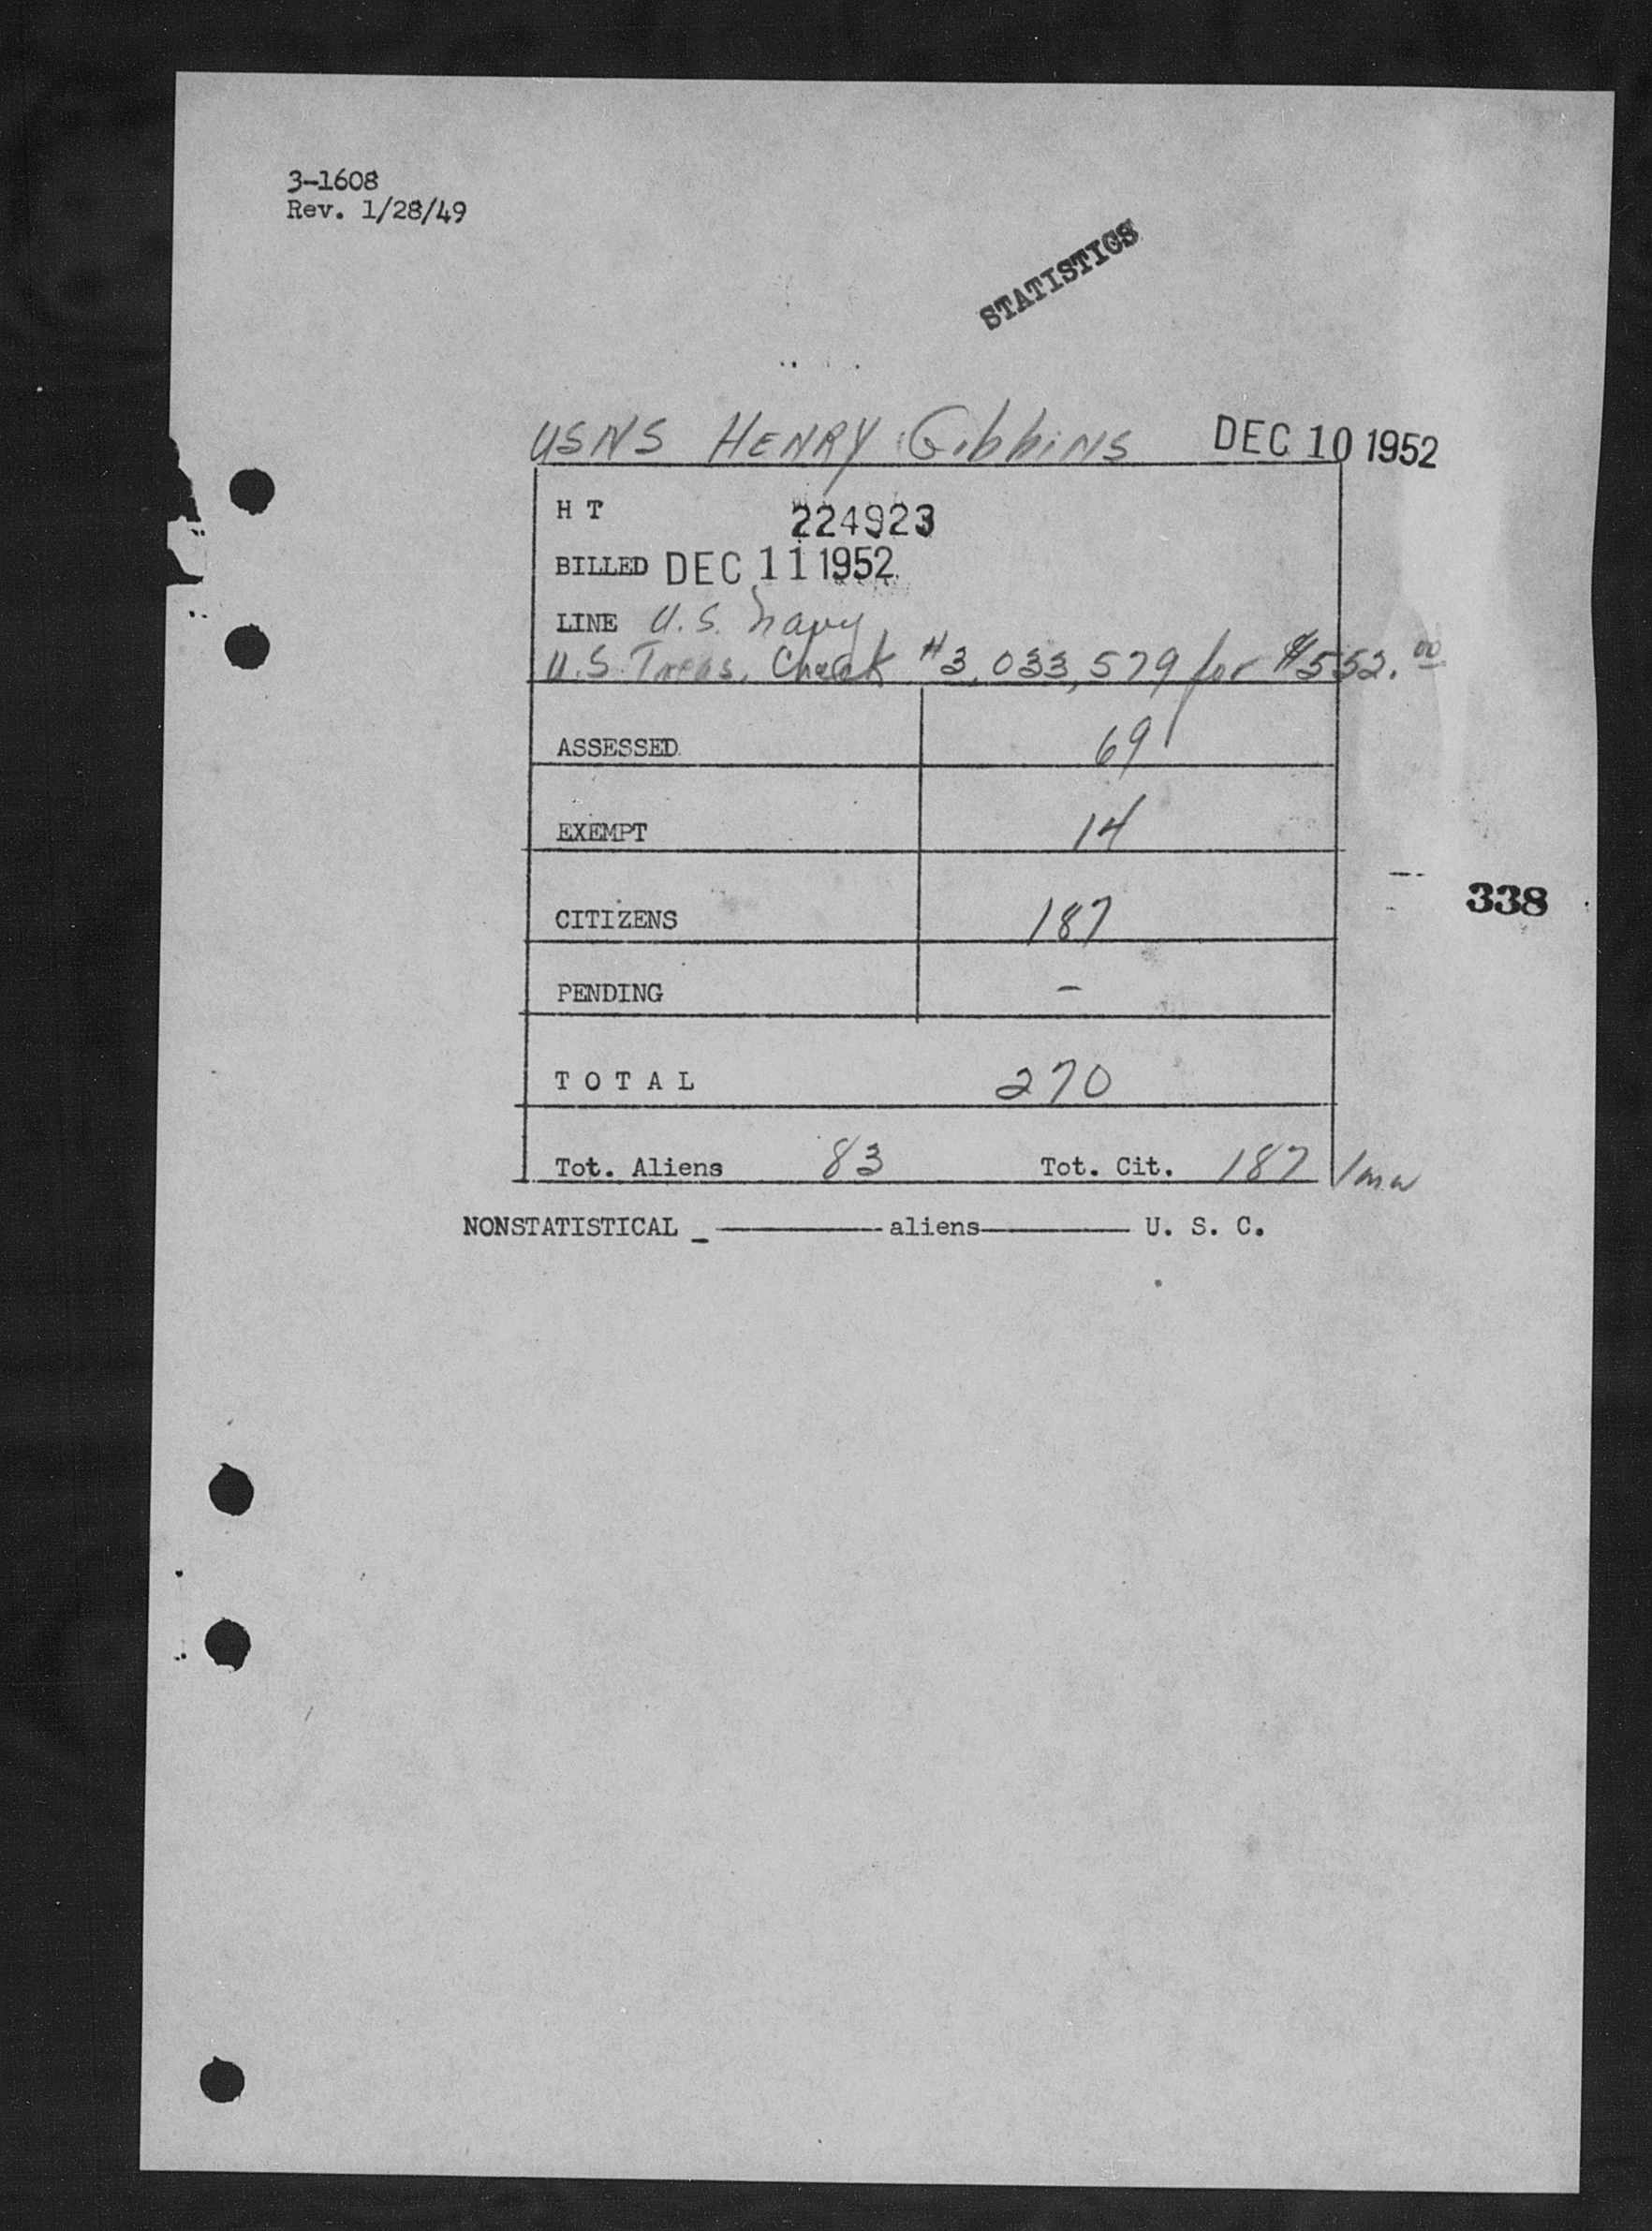 3-1608
Rev. 1/28/49
STATISTICS
USNS HENRY Gibbins DEC 10 1952
H T 224923
BILLED DEC 11 1952
LINE U.S. Navy
U.S. Treas. Check #3,033,579 for $552.00
ASSESSED 69
EXEMPT 14
338
CITIZENS 187
PENDING -
T O T A L 270
Tot. Aliens 83 Tot. Cit. 187 /mw
NONSTATISTICAL _ ———— aliens ———— U. S. C.